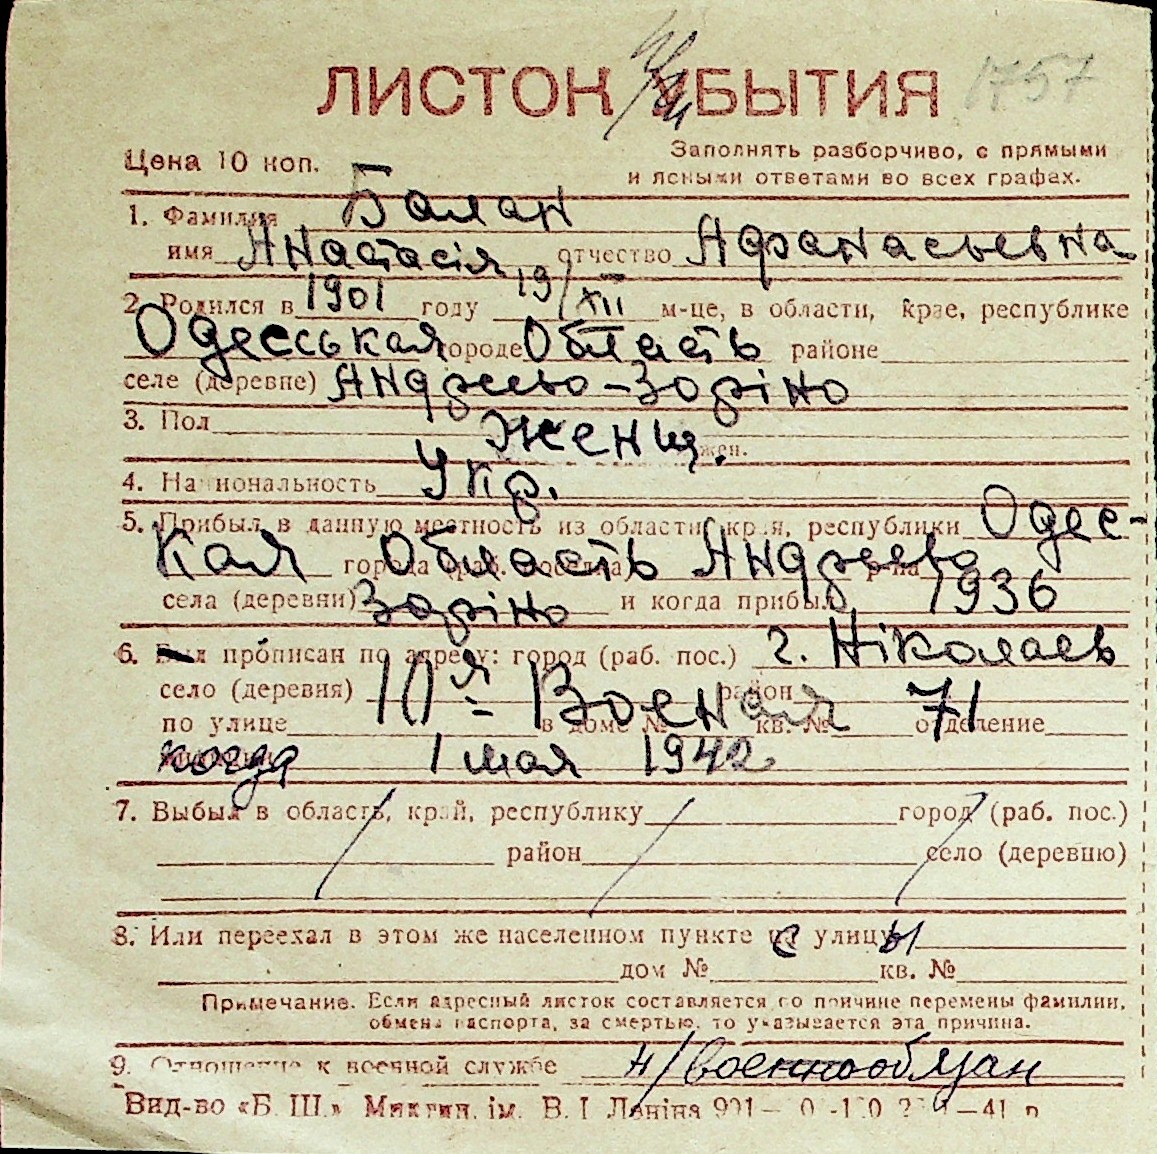 ЛИСТОК БЫТИЯ 1757
Цена 10 коп. Заполнять разборчиво, с прямыми
и ясными ответами во всех графах.
1. Фамилия Балан
имя Анастасія отчество Афанасьевна
2. Родился в 1901 году 19/XII м-це, в области, крае, республике
Одесськая городе Область районе
селе (деревне) Андреево-Зоріно
3. Пол Женщ. жен.
4. Национальность Укр.
5. Прибыл в данную местность из области, края, республики Одес-
кая города (раб. поселка) Область Андреево р-на
села (деревни) Зоріно и когда прибыл 1936
6. прописан по адресу: город (раб. пос.) г. Ніколаев
село (деревня) 10я - Военая район 71
по улице в доме № кв. № отделение
когда 1 мая 1942
7. Выбыл в область, край, республику город (раб. пос.)
район село (деревню)
8. Или переехал в этом же населенном пункте с улицы
дом № кв. №
Примечание. Если адресный листок составляется по причине перемены фамилии,
обмена паспорта, за смертью, то указывается эта причина.
9. Отношение к военной службе н/военнообязан
Вид-во «Б. Ш.» Миктип. ім. В. І Леніна